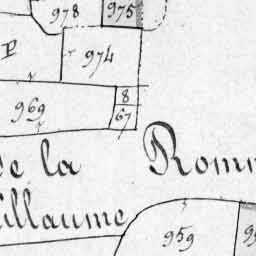 978 975
P 974
969 8
67
de la Rom
illaume
959